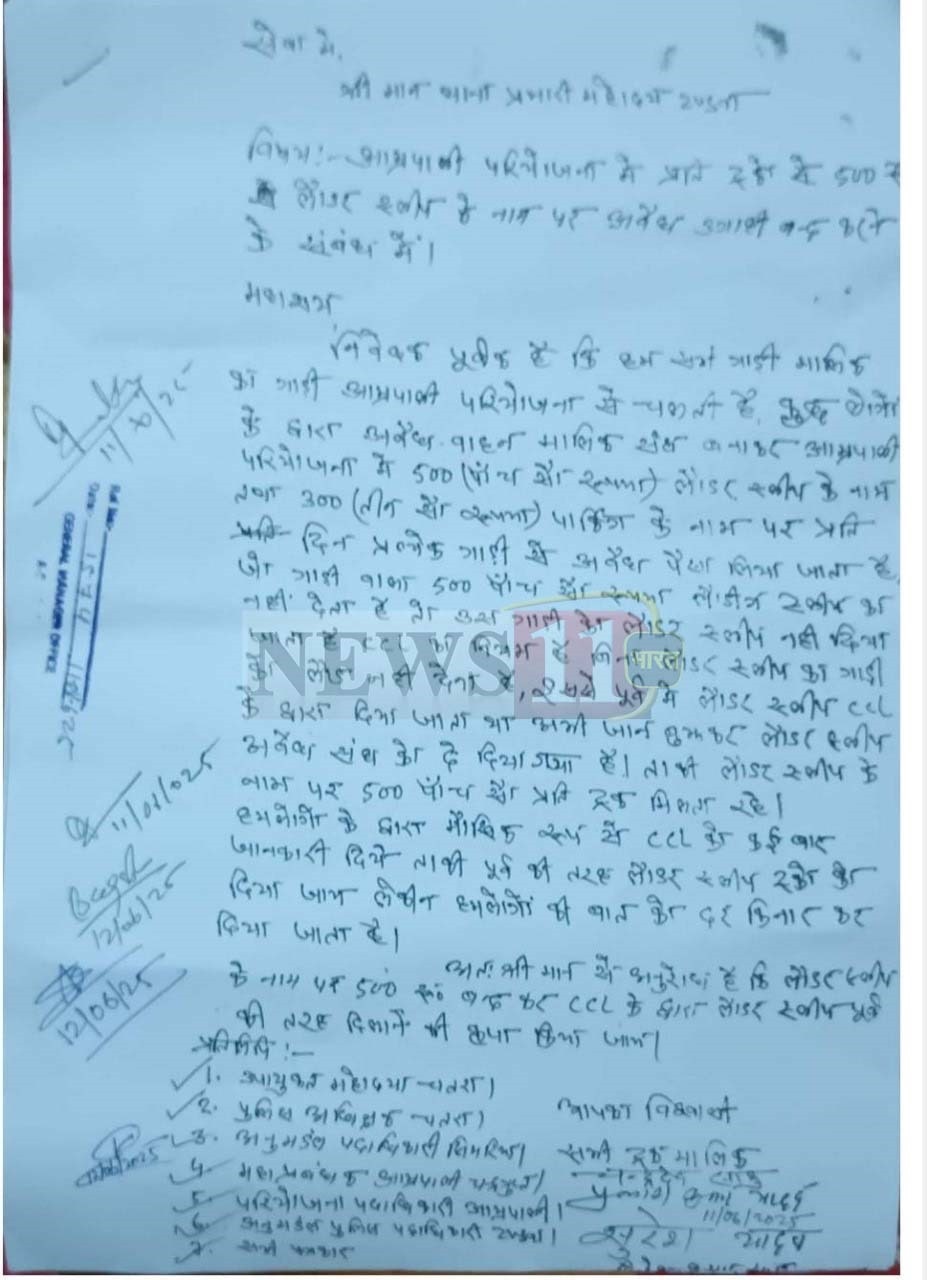 सेवा में,
श्री मान थाना प्रभारी महोदय टण्डवा
विषय:- आम्रपाली परियोजना में प्रति ट्रको से 500 रु
लोडर स्लीप के नाम पर अवैध उगाही बन्द करने
के संबंध में।
महाशय
निवेदन पूर्वक है कि हम सभी गाड़ी मालिक
का गाड़ी आम्रपाली परियोजना से चलती है, कुछ लोगों
के द्वारा अवैध वाहन मालिक संघ बनाकर आम्रपाली
परियोजना में 500 (पाँच सौ रूपया) लोडर स्लीप के नाम
तथा 300 (तीन सौ रूपया) पार्किंग के नाम पर प्रति
दिन प्रत्येक गाड़ी से अवैध पैसा लिया जाता है,
जो गाड़ी वाला 500 पाँच सौ रूपया लोडींग स्लीप का
नहीं देता है तो उस गाड़ी को लोडर स्लीप नहीं दिया
जाता है CCL का नियम है बिना लोडर स्लीप का गाड़ी
को लोड नहीं देना है, इससे पूर्व में लोडर स्लीप CCL
के द्वारा दिया जाता था अभी जान बुझकर लोडर स्लीप
अवैध संघ को दे दिया गया है। ताकी लोडर स्लीप के
नाम पर 500 पाँच सौ प्रति ट्रक मिलता रहे।
हमलोगों के द्वारा मौखिक रूप से CCL को कई बार
जानकारी दिये ताकी पूर्व की तरह लोडर स्लीप ट्रको को
दिया जाय लेकीन हमलोगों की बात को दर किनार कर
दिया जाता है।
अतः श्री मान से अनुरोध है कि लोडर स्लीप
के नाम पर 500 रू० बन्द कर CCL के द्वारा लोडर स्लीप पूर्व
की तरह दिलाने की कृपा किया जाय।
प्रतिलिपि :-
1. आयुक्त महोदया चतरा।
2. पुलिस अधिक्षक चतरा।
3. अनुमंडल पदाधिकारी सिमरिया।
4. महाप्रबंधक आम्रपाली चन्द्रगुप्त।
5. परियोजना पदाधिकारी आम्रपाली।
6. अनुमंडल पुलिस पदाधिकारी टण्डवा।
7. सभी पत्रकार
आपका विश्वासी
सभी ट्रक मालिक
कुमार यादव
11/06/2025
सुरेश यादव
11/6/25
Ref No.
Date
GENERAL MANAGER OFFICE
11/06/2025
12/06/25
12/06/25
12/06/2025
NEWS 11 भारत